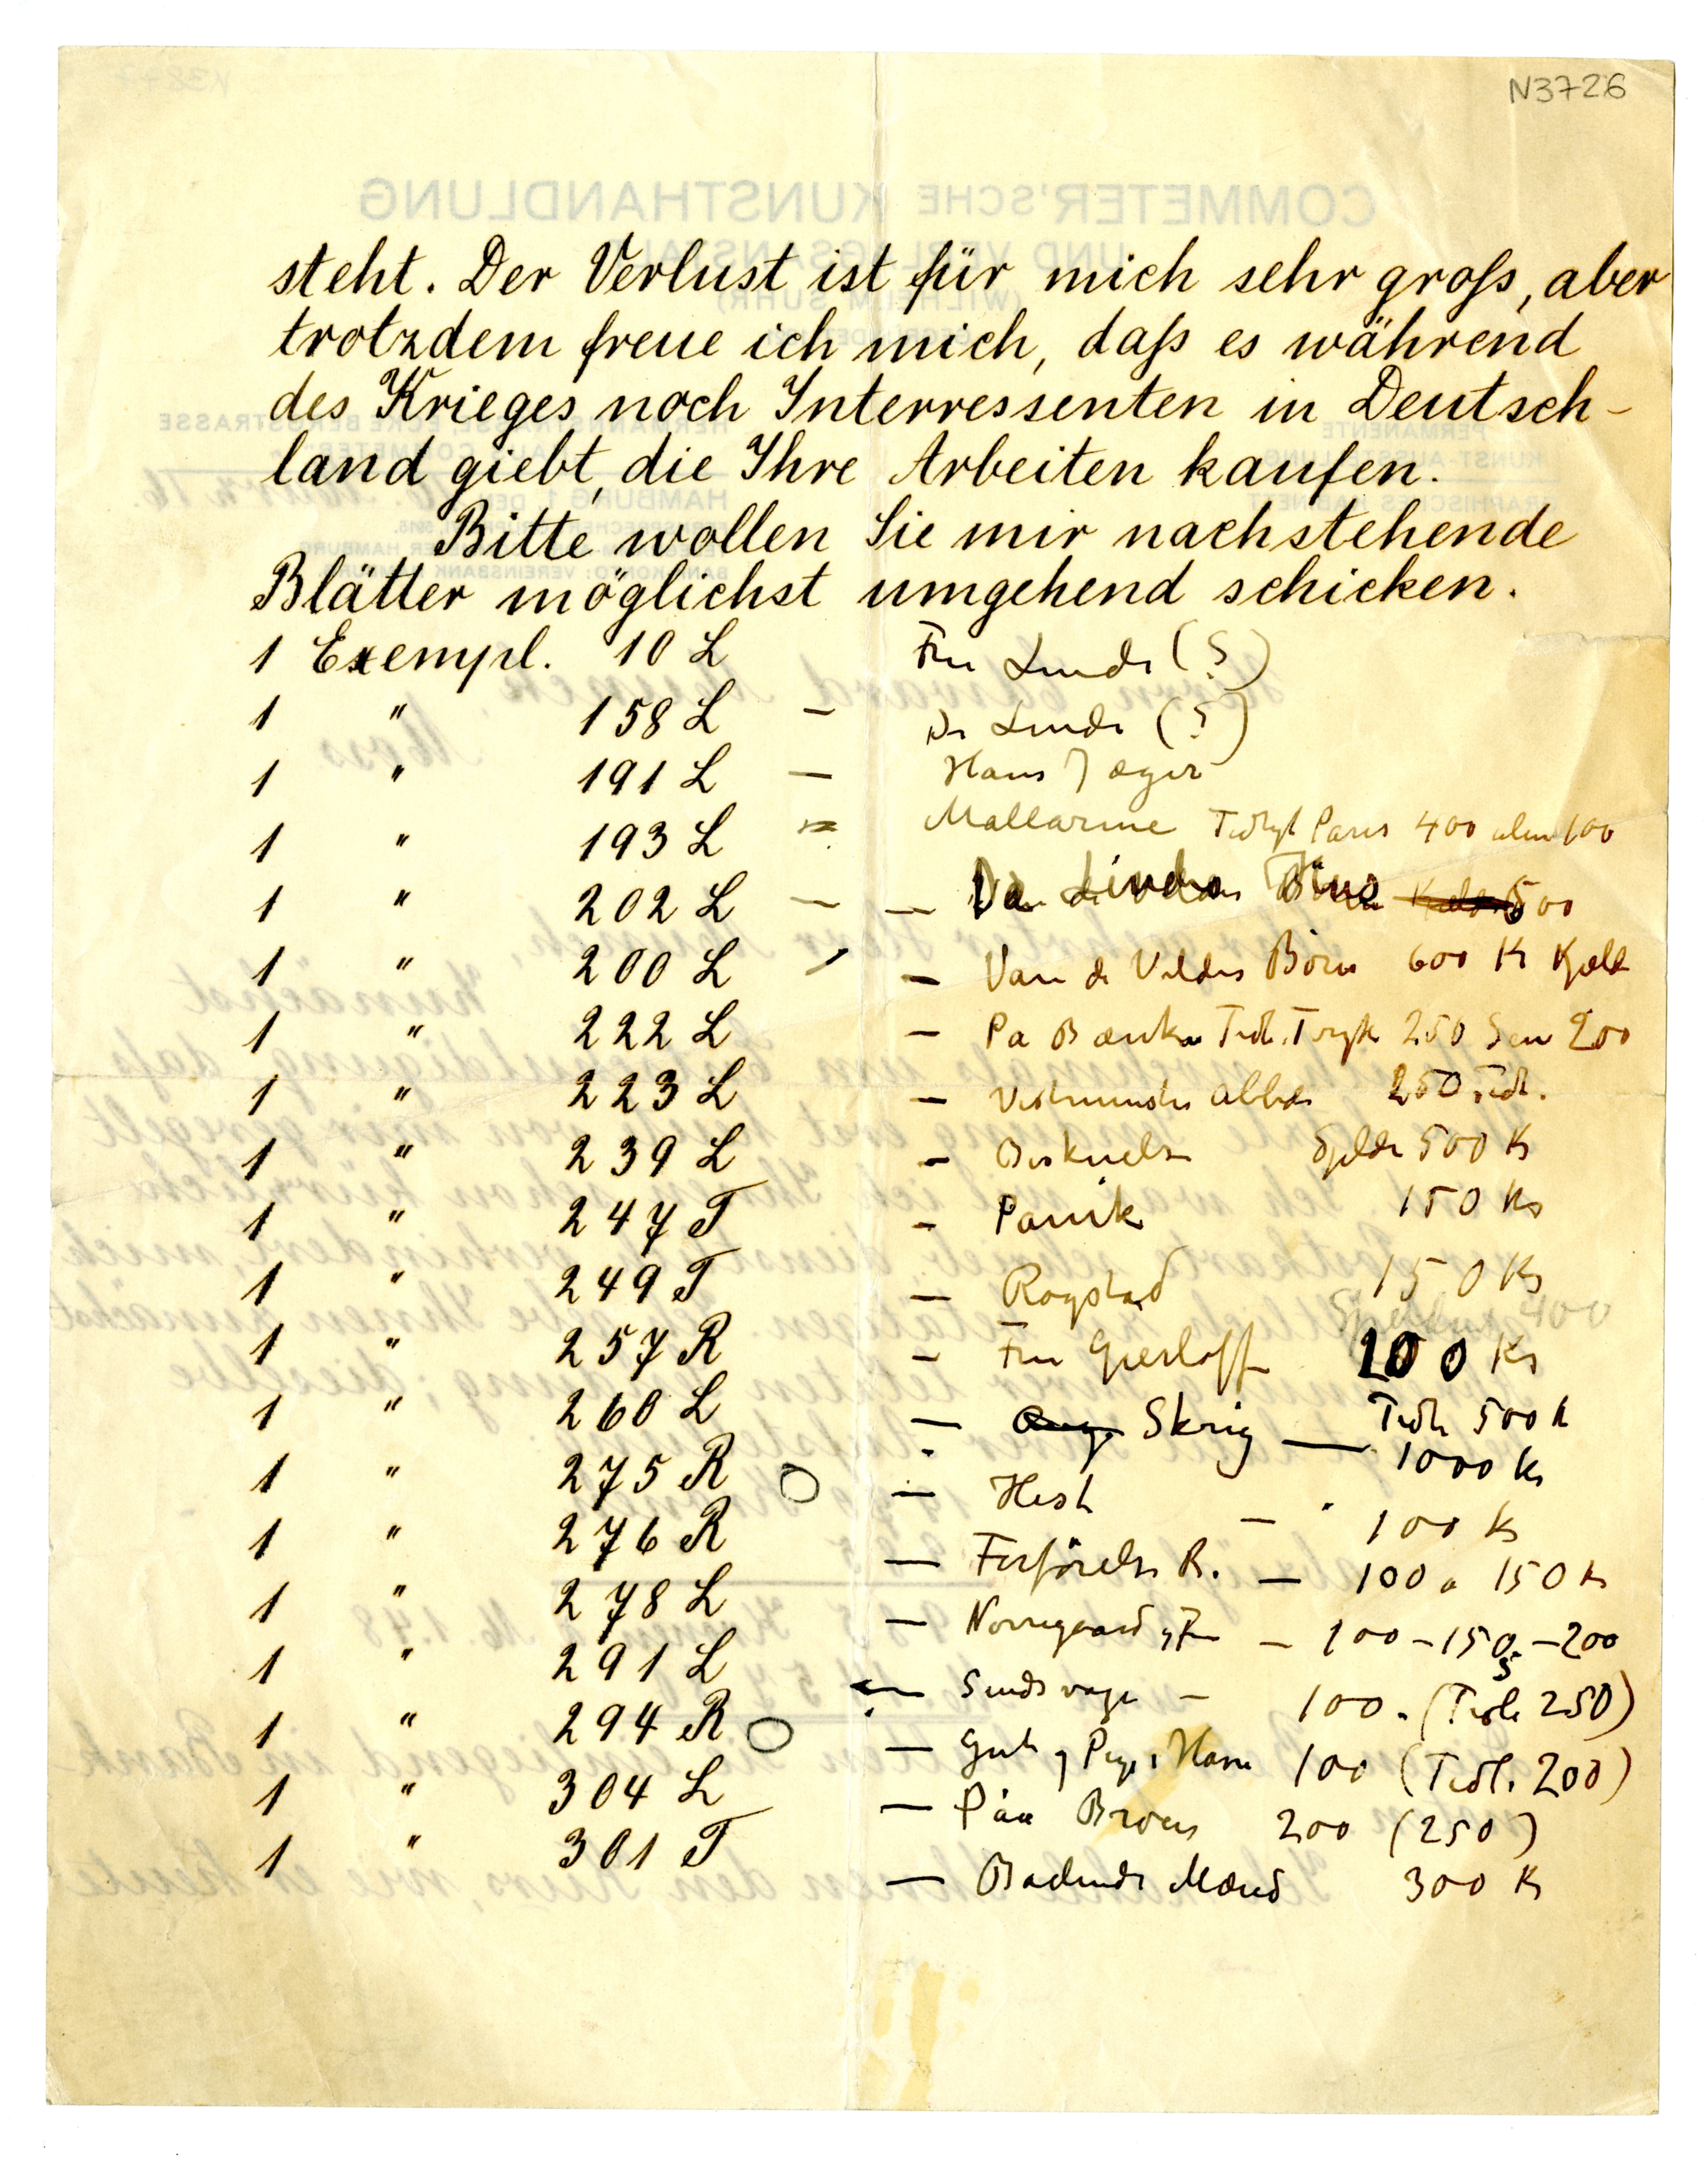 N3726
steht. Der Verlust ist für mich sehr groß, aber
trotzdem freue ich mich, daß es während
des Krieges noch Interressenten in Deutsch-
land giebt, die Ihre Arbeiten kaufen.
Bitte wollen Sie mir nachstehende
Blätter möglichst umgehend schicken.
1 Exempl. 10 L Fru Linde (?)
1 " 158 L – Dr Linde (?)
1 " 191 L – Hans Jæger
1 " 193 L Mallarme Paris 400 100
1 " 202 L – – 500
1 " 200 L – Van de Veldes Börn 600 Kr
1 " 222 L – Pa Bænken Tidl. Tryk 250 Sen 200
1 " 223 L – Abbedi 250 Tidl.
1 " 239 L – 500 Kr
1 " 247 T – Panik 150 Kr
1 " 249 T – Rogstad 150 Kr
400
1 " 257 R – Fru Gierloff 100 Kr
1 " 260 L – Skrig — Tidl 500 K
1000 Kr
1 " 275 R – Hest – 100 Kr
1 " 276 R – Forförelse R. – 100 a 150 Kr
1 " 278 L – Norregaard og Fru – 100 – 150 – 200
1 " 291 L – 100 (Tidl. 250)
1 " 294 R – Gut og Pige i Have 100 (Tidl. 200)
1 " 304 L – Paa Broen 200 (250)
1 " 301 T – Badende Mænd 300 Kr